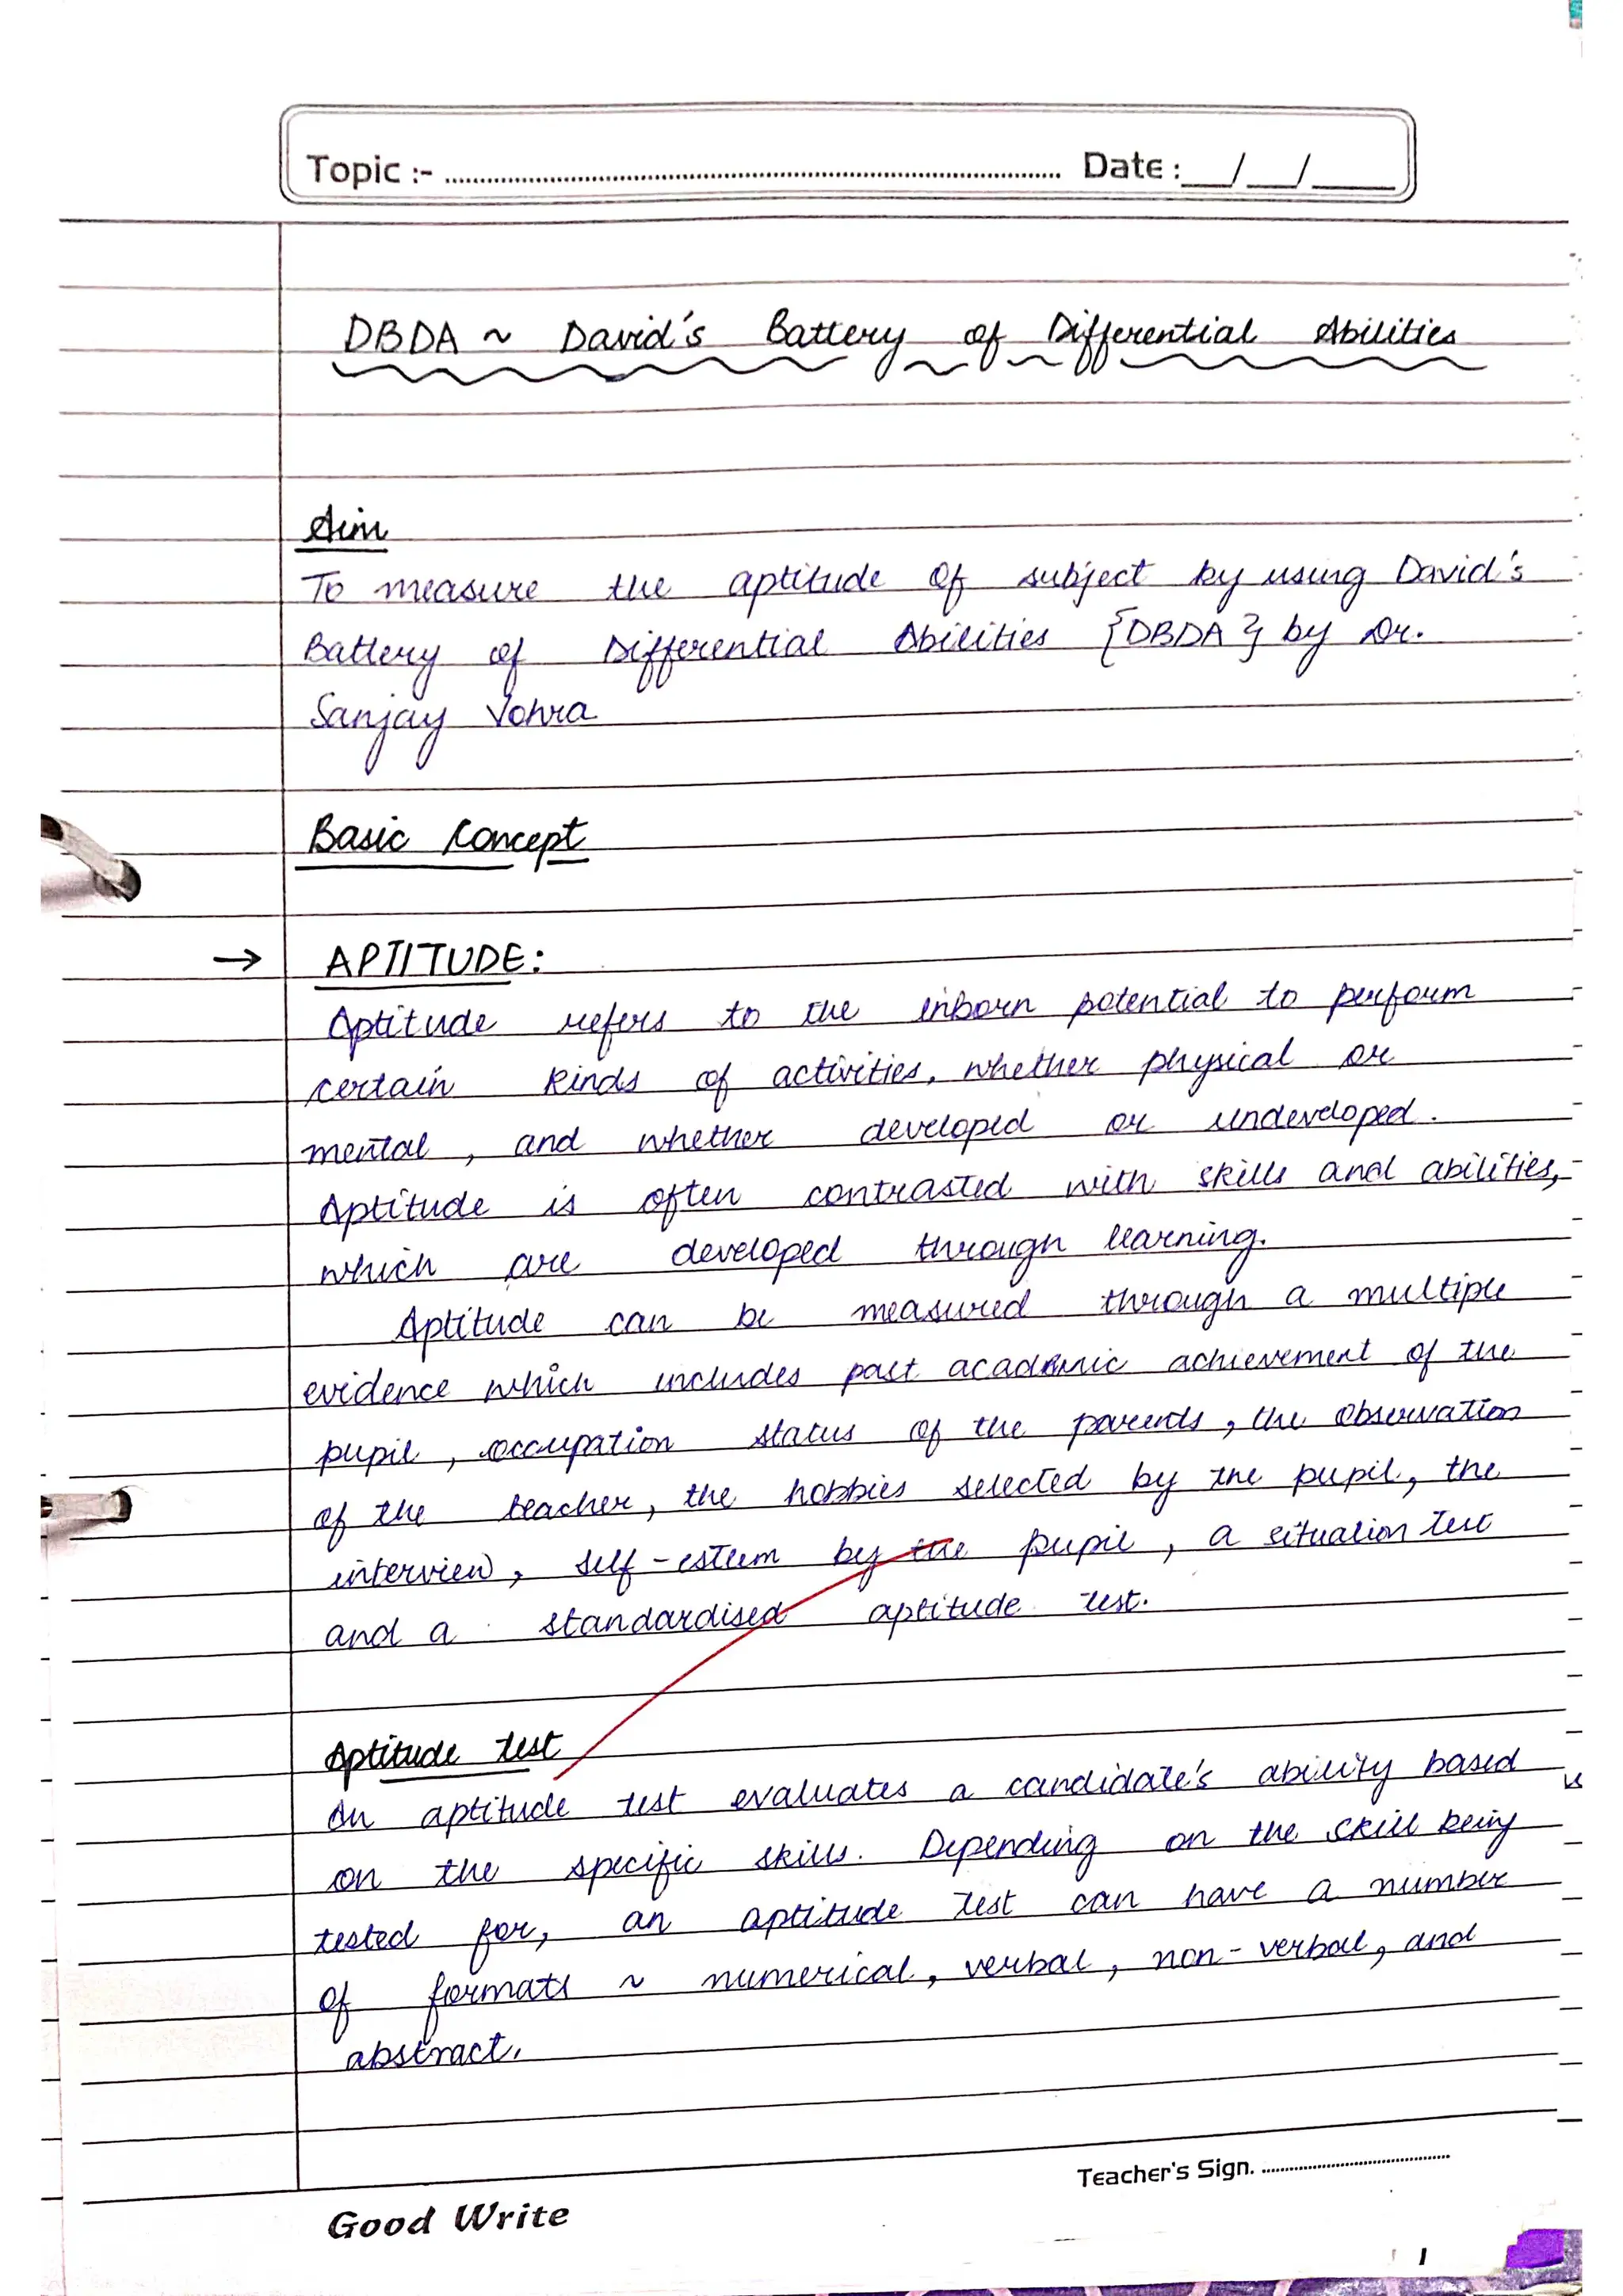 Topic :- ........................ Date : __/__/____
DBDA ~ David's Battery of Differential Abilities
Aim
To measure the aptitude of subject by using David's
Battery of Differential Abilities {DBDA} by Dr.
Sanjay Vohra
Basic Concept
→ APTITUDE:
Aptitude refers to the inborn potential to perform
certain kinds of activities, whether physical or
mental, and whether developed or undeveloped.
Aptitude is often contrasted with skills and abilities,
which are developed through learning.
Aptitude can be measured through a multiple
evidence which includes past academic achievement of the
pupil, occupation status of the parents, the observation
of the teacher, the hobbies selected by the pupil, the
interview, self-esteem by the pupil, a situation test
and a standardised aptitude test.
Aptitude test
An aptitude test evaluates a candidate's ability based
on the specific skills. Depending on the skill being
tested for, an aptitude test can have a number
of formats ~ numerical, verbal, non-verbal, and
abstract.
Teacher's Sign. ........................
Good Write
1